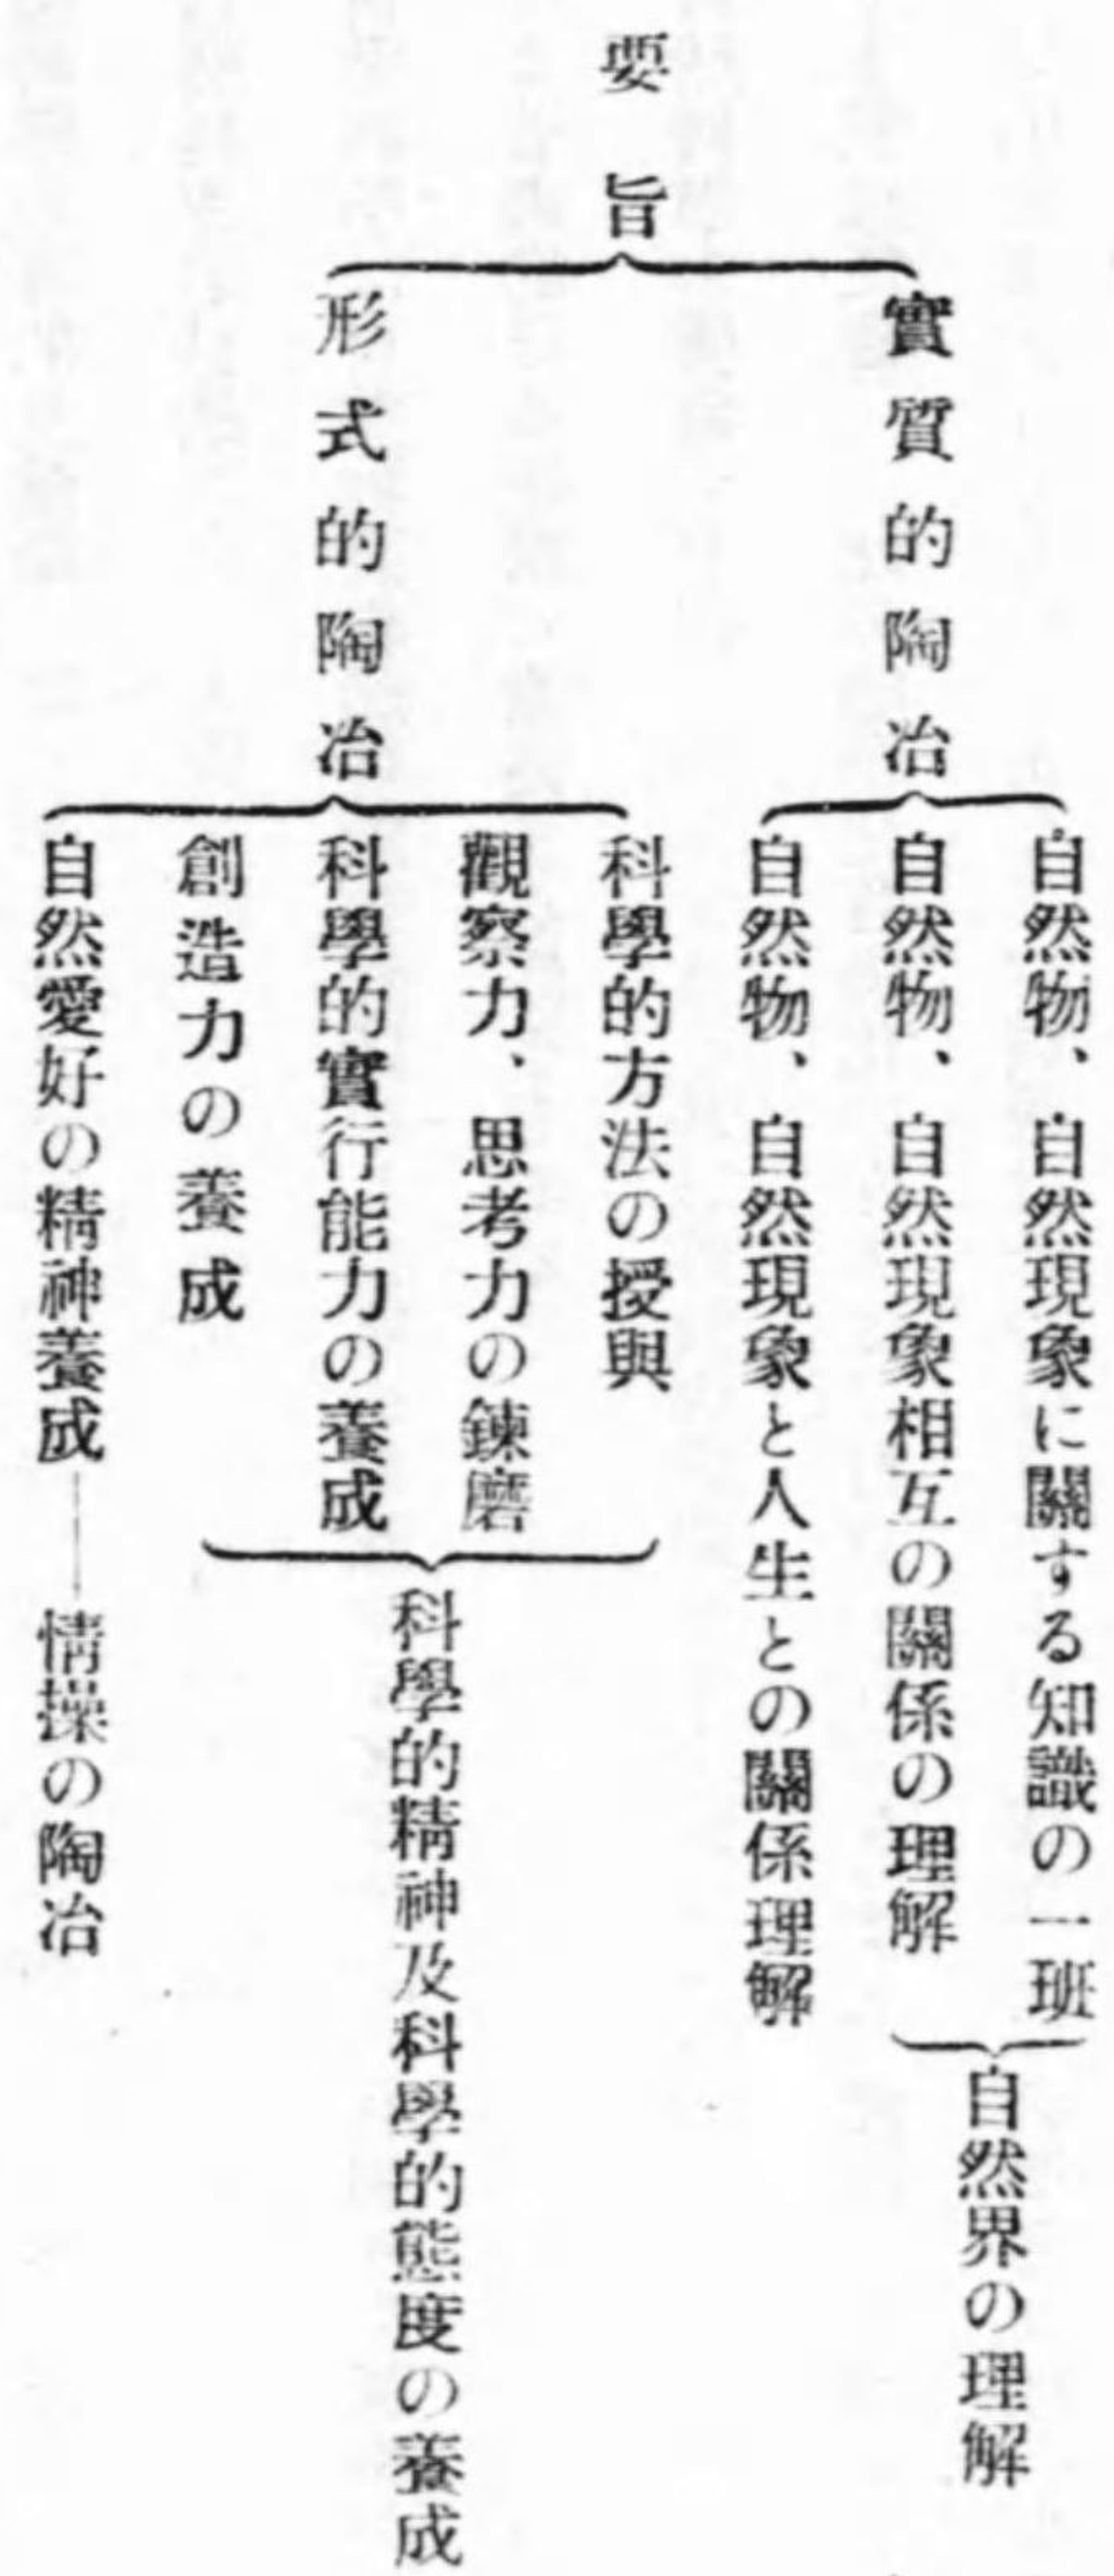 要旨
實質的陶冶
自然物、自然現象に關する知識の一班
自然物、自然現象相互の關係の理解
自然界の理解
自然物、自然現象と人生との關係理解
形式的陶冶
科學的方法の授與
觀察力、思考力の鍊磨
科學的實行能力の養成
創造力の養成
科學的精神及科學的態度の養成
自然愛好の精神養成――情操の陶冶